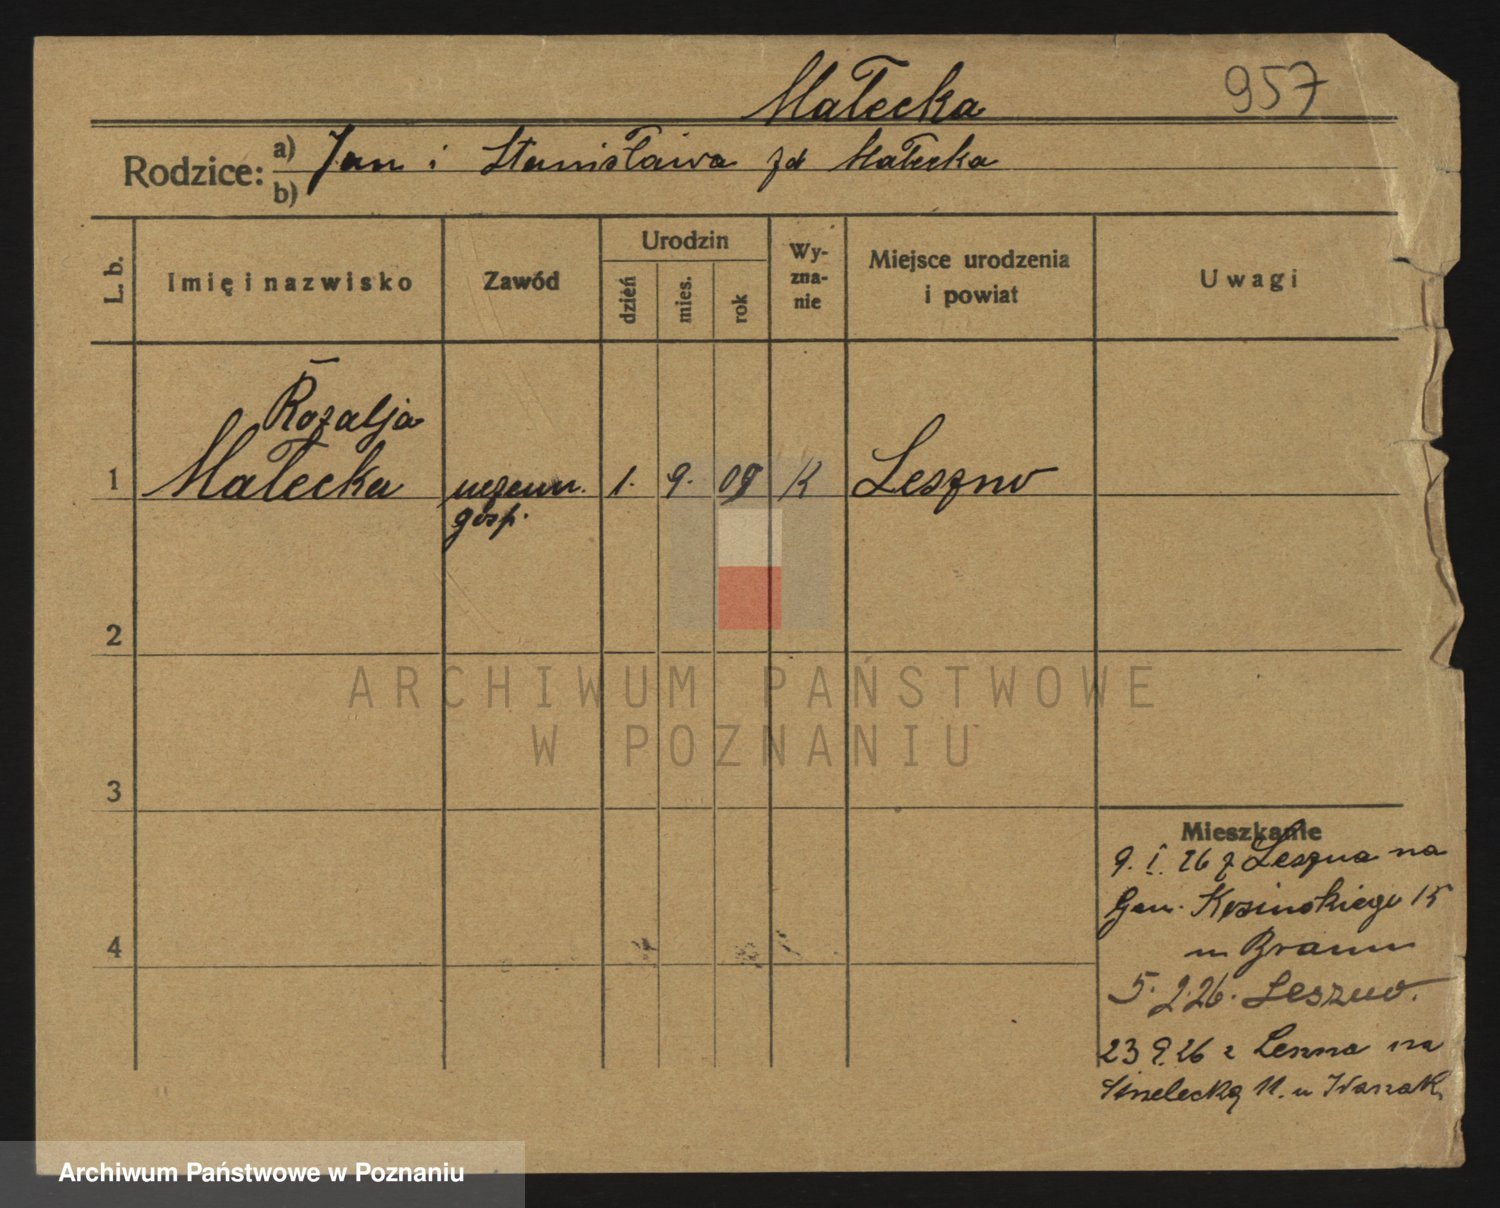 Małecka
957
Rodzice: a) Jan i Stanisława zd Małecka
b)
L. b.
Imię i nazwisko
Zawód
Urodzin
dzień
mies.
rok
Wy-
zna-
nie
Miejsce urodzenia
i powiat
Uwagi
Rozalja
1 Małecka uczenn. 1. 9. 09 K Leszno
gosp.
2
3
4
ARCHIWUM PAŃSTWOWE
W POZNANIU
Mieszkanie
9. I. 26 z Leszna na
Gen. Kosinskiego 15
u
5. 2. 26. Leszno.
23 9. 26 z Leszna na
Strzelecką 11. u
Archiwum Państwowe w Poznaniu